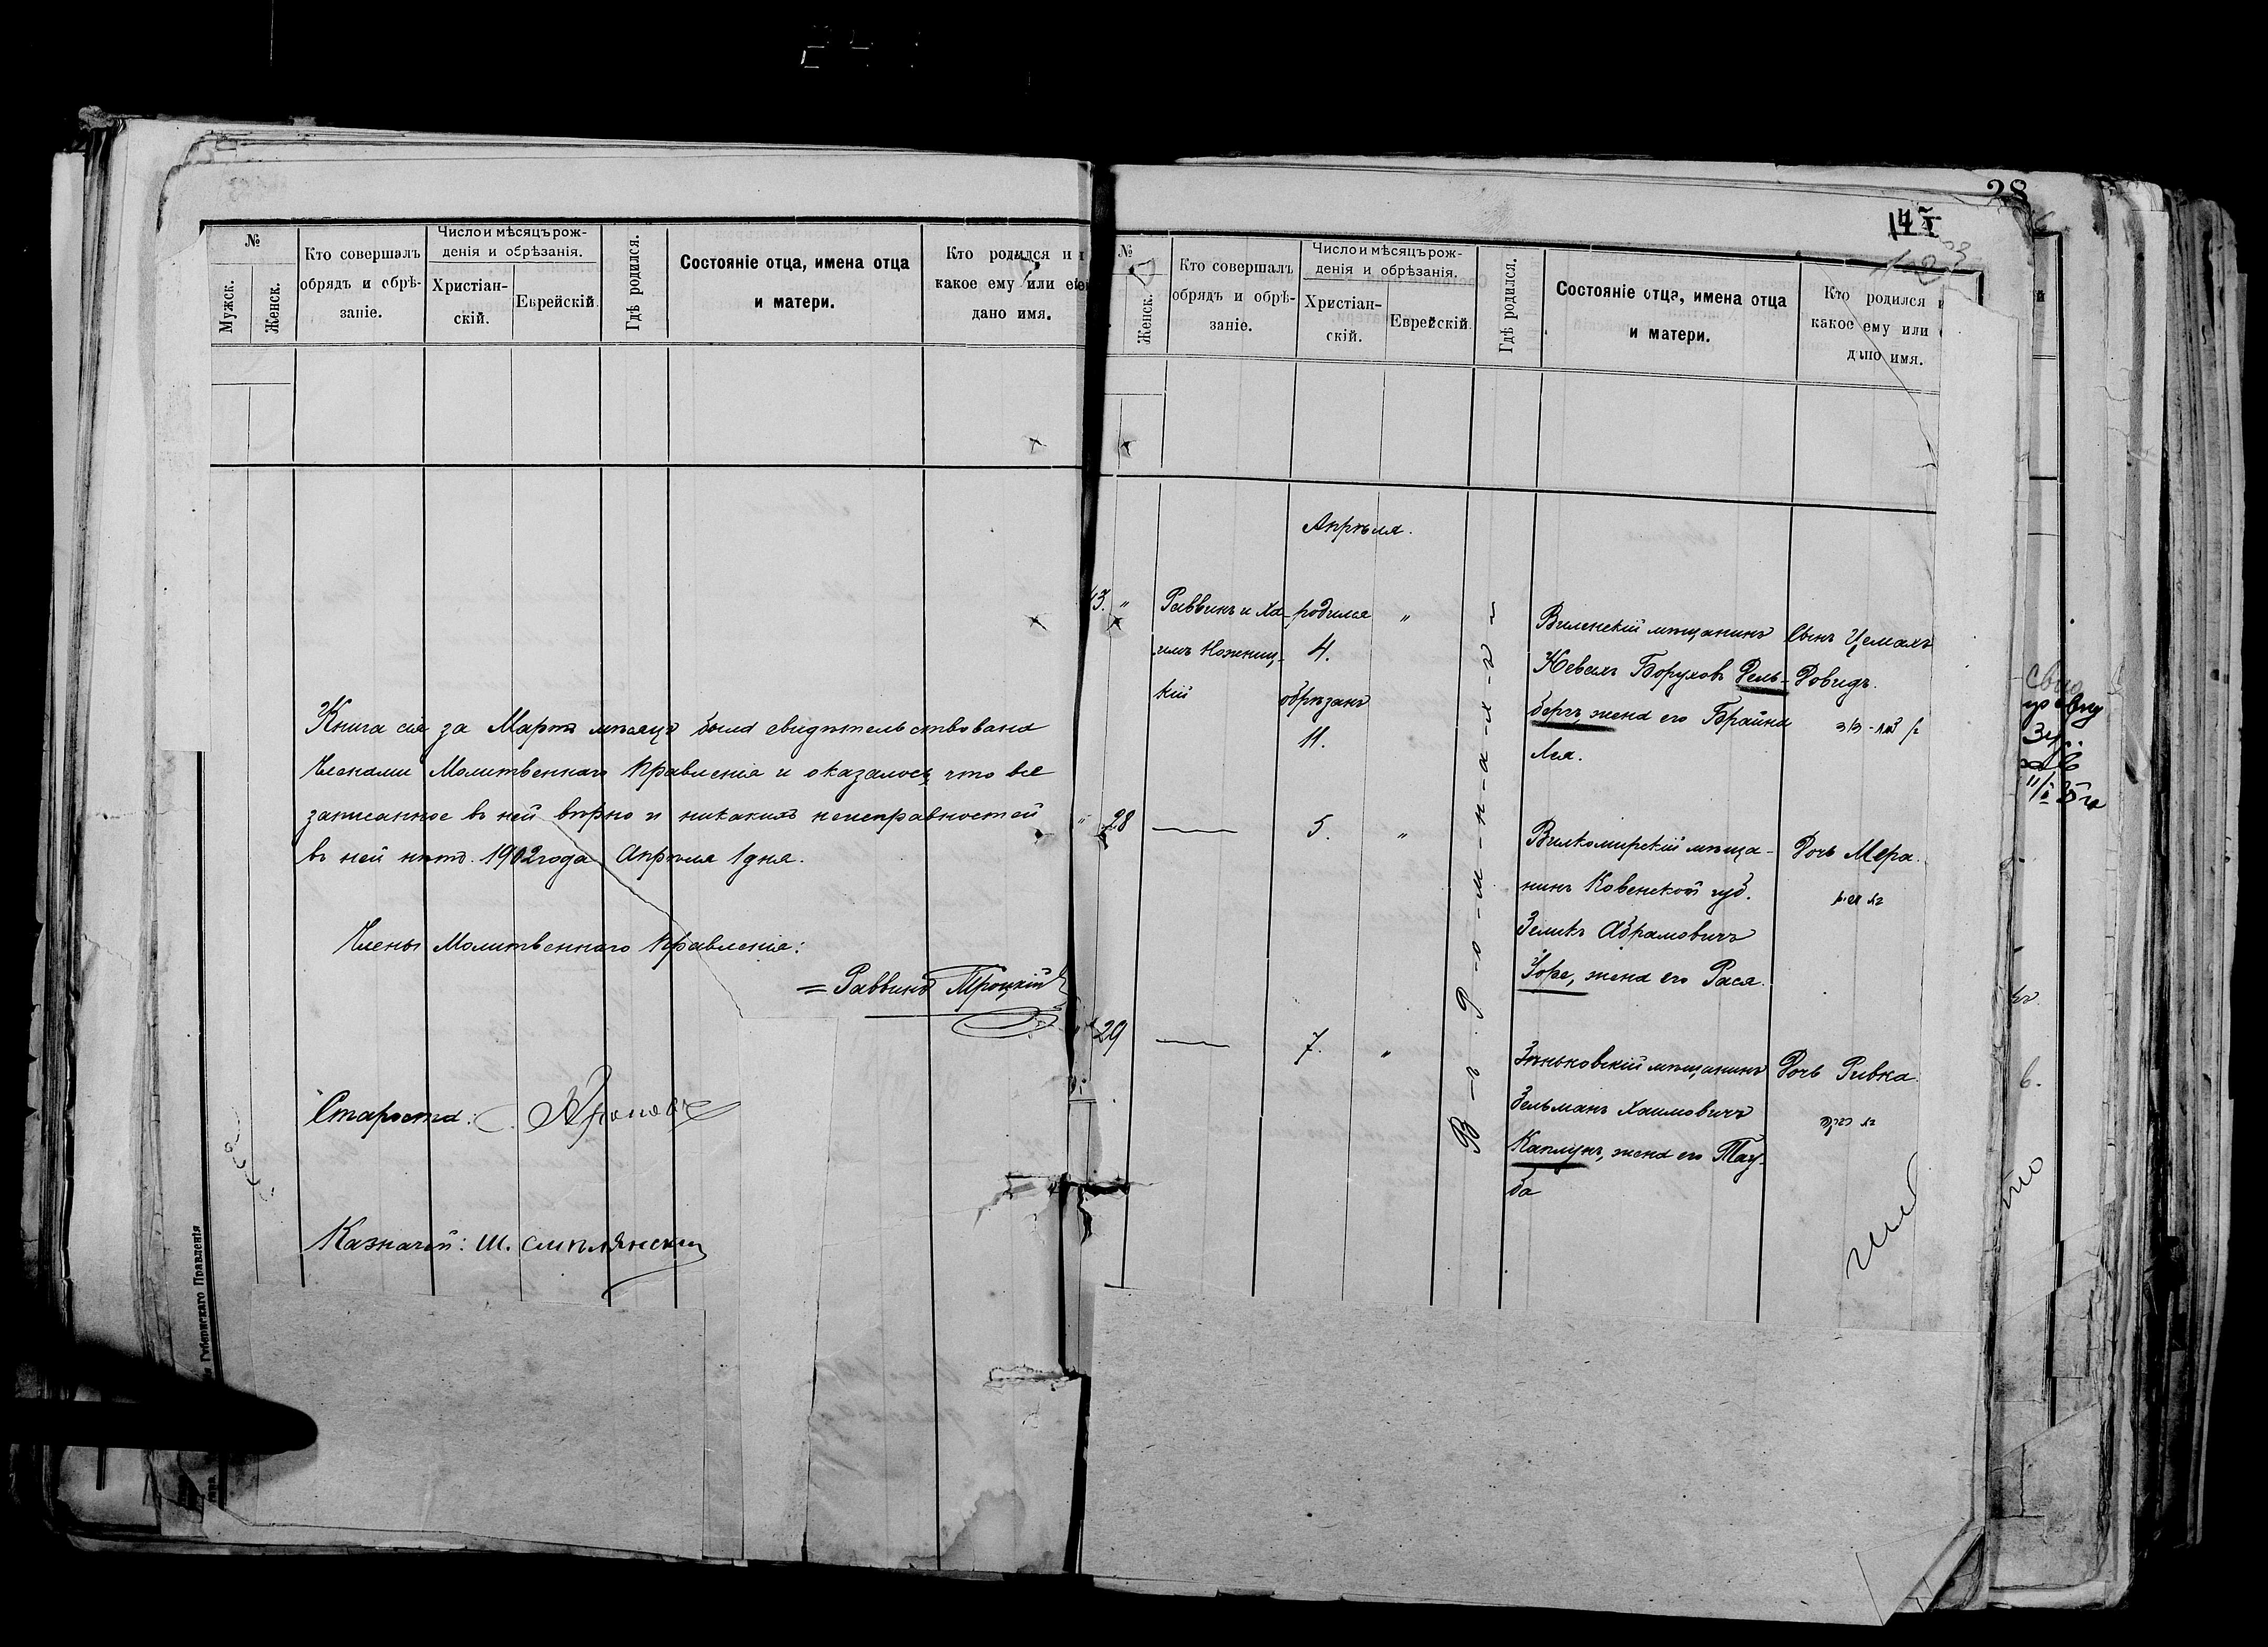 №
Мужск.
Женск.
Кто совершалъ
обрядъ и обрѣ-
заніе.
Число и мѣсяцъ рож-
денія и обрѣзанія.
Христіан-
скій.
Еврейскій.
Гдѣ родился.
Состояніе отца, имена отца
и матери.
Кто родился и
какое ему или
дано имя.
Книга сія за Мартъ мѣсяцъ была свидѣтельствована
Членами Молитвеннаго Правленія и оказалось, что все
записанное въ ней вѣрно и никакихъ неисправностей
въ ней нѣтъ. 1902 года Апрѣля 1 дня.
Члены Молитвеннаго Правленія:
= Раввинъ Троцкій
Староста:
Казначей: Ш.
Губернскаго Правленія
28
№
Женск.
Кто совершалъ
обрядъ и обрѣ-
заніе.
Число и мѣсяцъ рож-
денія и обрѣзанія.
Христіан-
скій.
Еврейскій.
Гдѣ родился.
Состояніе отца, имена отца
и матери.
Кто родился и
какое ему или
дано имя.
Апрѣля.
В-ъ Р-о-м-н-а-х-ъ
3. " Раввинъ и Ха-
имъ Ножениц-
кій
родился
4.
обрѣзанъ
11.
"
Виленскій мѣщанинъ
Кевель Боруховъ Дель-
бергъ, жена его Брайна
Лея.
Сынъ Цемахъ
Довидъ.
" 28 — 5. "
Вилкомирскій мѣща-
нинъ Ковенской губ.
Зеликъ Абрамовичъ
Зофе, жена его Рася.
Дочь Мера.
29 — 7. "
Зѣньковскій мѣщанинъ
Зельманъ Хаимовичъ
Каплунъ, жена его Тау-
ба
Дочь Ривка.